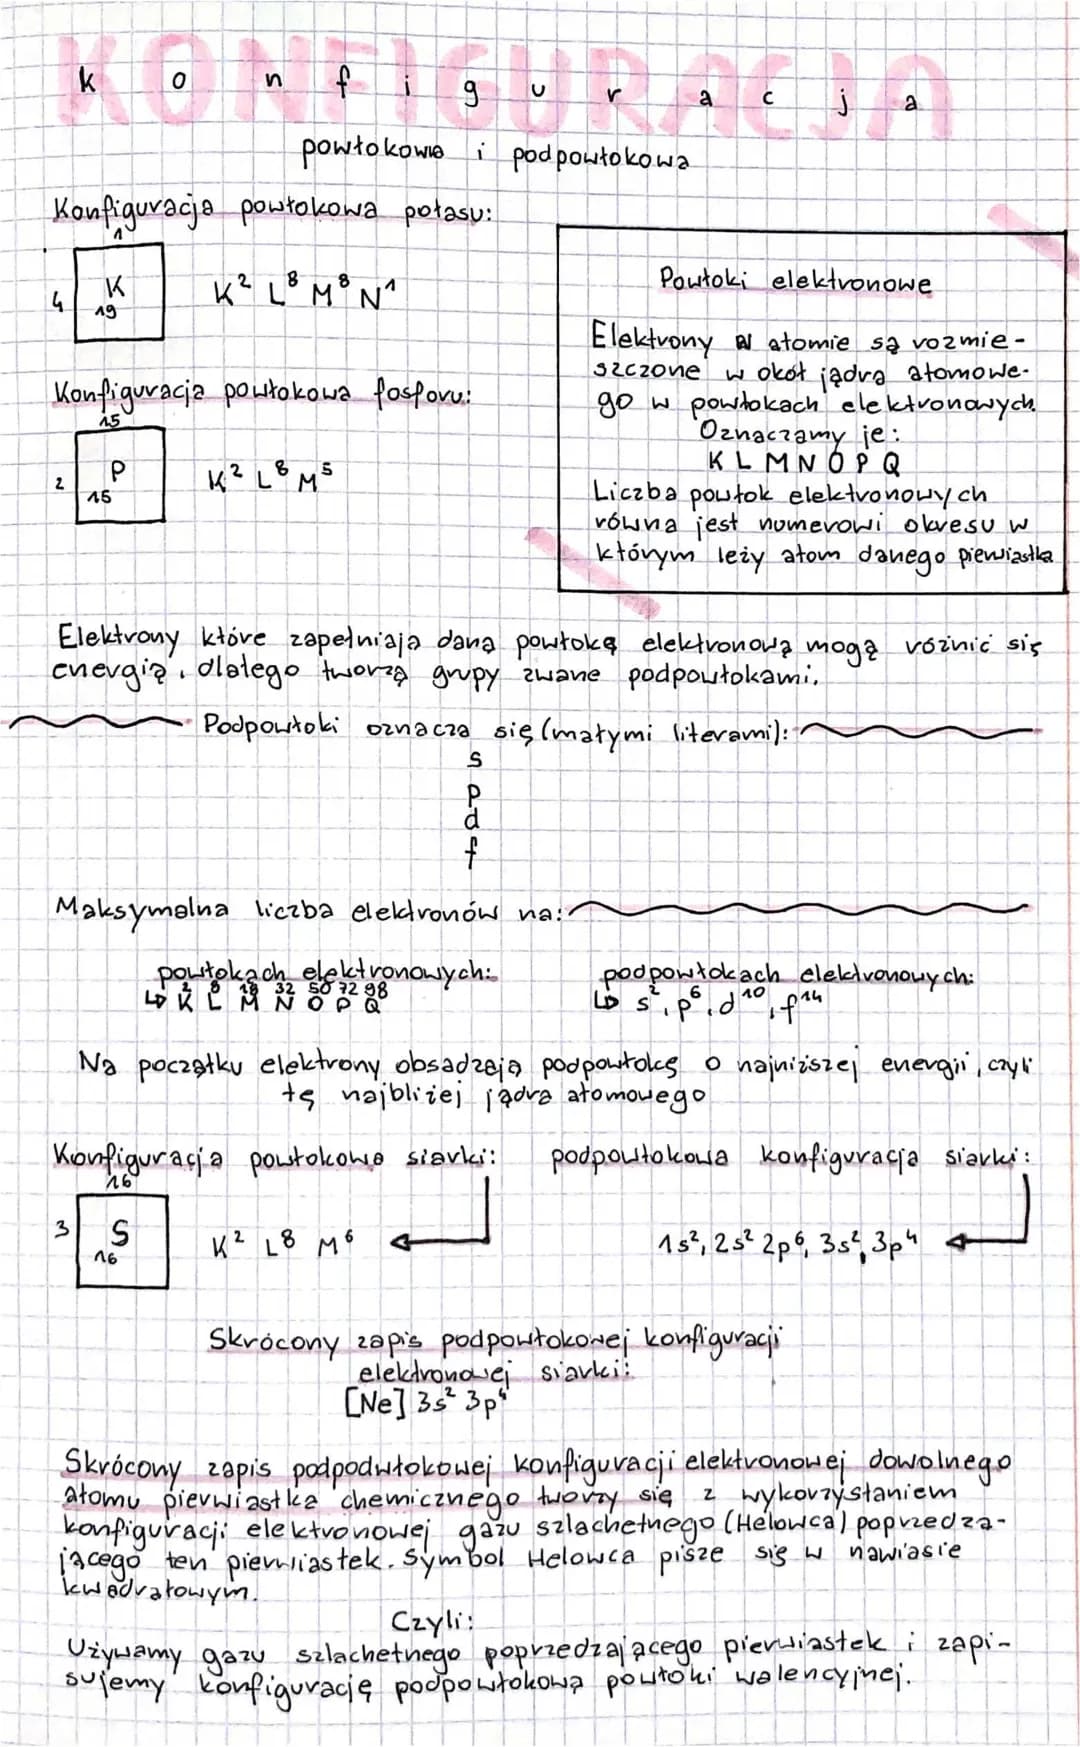 KONFIGURACJA
konfiguracja
powłokowa i podpowłokowa
Konfiguracja powłokowa potasu:
1
4 K 19 K² L⁸ M⁸ N¹
Powłoki elektronowe
Elektrony w atomie są rozmie-
szczone w okół jądra atomowe-
go w powłokach elektronowych.
Oznaczamy je:
K L M N O P Q
Liczba powłok elektronowych
równa jest numerowi okresu w
którym leży atom danego pierwiastka
Konfiguracja powłokowa fosforu:
15
2 P 15 K² L⁸ M⁵
Elektrony które zapełniają daną powłokę elektronową mogą różnić się
energią, dlatego tworzą grupy zwane podpowłokami.
Podpowłoki oznacza się (małymi literami):
s
p
d
f
Maksymalna liczba elektronów na:
powłokach elektronowych:
↳ K² L⁸ M¹⁸ N³² O⁵⁰ P⁷² Q⁹⁸
podpowłokach elektronowych:
↳ s², p⁶, d¹⁰, f¹⁴
Na początku elektrony obsadzają podpowłokę o najniższej energii, czyli
tę najbliżej jądra atomowego
Konfiguracja powłokowa siarki:
16
3 S 16 K² L⁸ M⁶
podpowłokowa konfiguracja siarki:
1s², 2s² 2p⁶, 3s², 3p⁴
Skrócony zapis podpowłokowej konfiguracji
elektronowej siarki:
[Ne] 3s² 3p⁴
Skrócony zapis podpodwłokowej konfiguracji elektronowej dowolnego
atomu pierwiastka chemicznego tworzy się z wykorzystaniem
konfiguracji elektronowej gazu szlachetnego (Helowca) poprzedza-
jącego ten pierwiastek. Symbol Helowca pisze się w nawiasie
kwadratowym.
Czyli:
Używamy gazu szlachetnego poprzedzającego pierwiastek i zapi-
sujemy konfigurację podpowłokową powłoki walencyjnej.